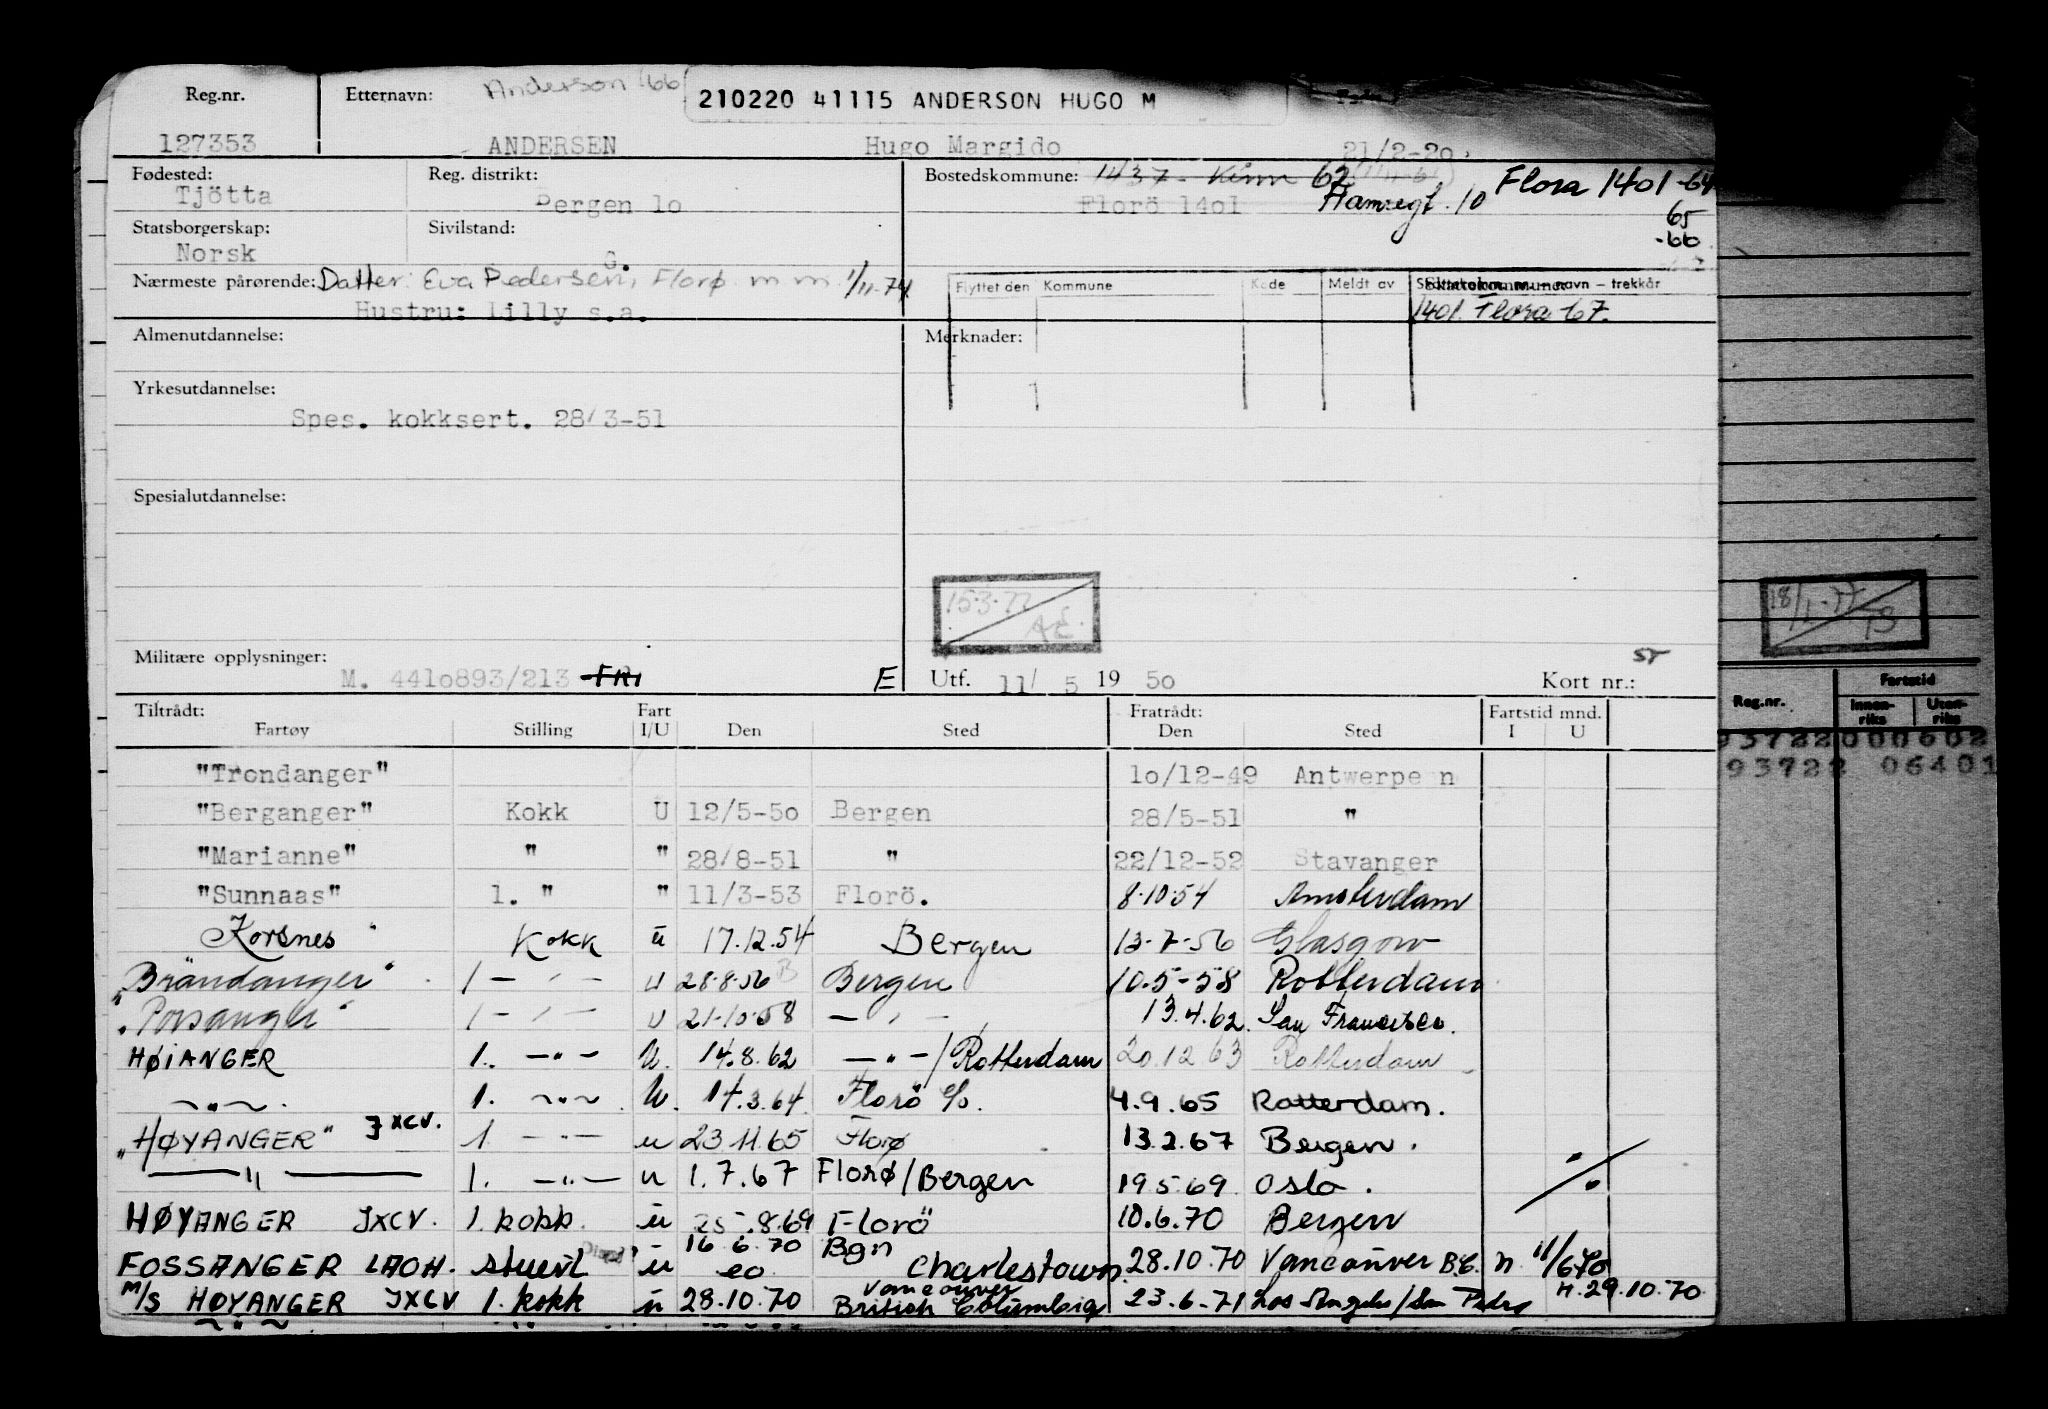 Reg.nr. Etternavn: Anderson (66 210220 41115 ANDERSON HUGO M
127353 ANDERSEN Hugo Margido 21/2-20.
Fødested: Reg. distrikt: Bostedskommune: 1437 - Kinn 62 Flora 1401-64
Tjötta Bergen 1o Florö 14o1 Hamregt. 10 65
Statsborgerskap: Sivilstand: -66
Norsk G.
Nærmeste pårørende: Datter: Eva Pedersen, Florø m m 1/11-74
Hustru: Lilly s.a.
Flyttet den Kommune Kode Meldt av navn - trekkår
1401. Flora 67.
Almenutdannelse: Merknader:
Yrkesutdannelse:
Spes. kokksert. 28/3-51
Spesialutdannelse:
15.3.77 AE.
18/1-77
Militære opplysninger:
M. 441o893/213 E Utf. 11/ 5 19 5o Kort nr.:
Tiltrådt: Fart Fratrådt: Fartstid mnd.
Fartøy Stilling I/U Den Sted Den Sted I U
Reg.nr. Fartstid
Innen-riks Uten-riks
93722000602
93722 06401
"Trondanger" 1o/12-49 Antwerpen
"Berganger" Kokk U 12/5-5o Bergen 28/5-51 "
"Marianne" " " 28/8-51 " 22/12-52 Stavanger
"Sunnaas" 1. " " 11/3-53 Florö. 8.10.54 Amsterdam
Korsnes " Kokk u 17.12.54 Bergen 13-7-56 Glasgow
"Brandanger" 1 - " - u 28.8.56 Bergen 10.5-58 Rotterdam
"Porsanger" 1 - " - u 21-10-58 - " - 13.4.62. San Francisco.
HØIANGER 1. - " - U. 14.8.62 - " - / Rotterdam 20.12.63 Rotterdam
- " -. 1. - " -. U. 14.3.64. Florö 4.9.65 Rotterdam.
"HØYANGER" JXCV. 1. - " - u 23.11.65 Florø 13.2.67 Bergen.
- " - 1. - " - u 1.7.67 Florø/Bergen 19.5.69. Oslo.
HØYANGER JXCV. 1. kokk. u 25.8.69 Florö 10.6.70 Bergen
FOSSANGER LAOH. stuert u 16.6.70 Bgn Charlestown. 28.10.70 Vancouver B.C. n 11/6 70
M/S HØYANGER JXCV 1. kokk u 28.10.70 Vancouver British Columbia 23.6-71 Los Angeles/San Pedro H.29.10.70
- " -